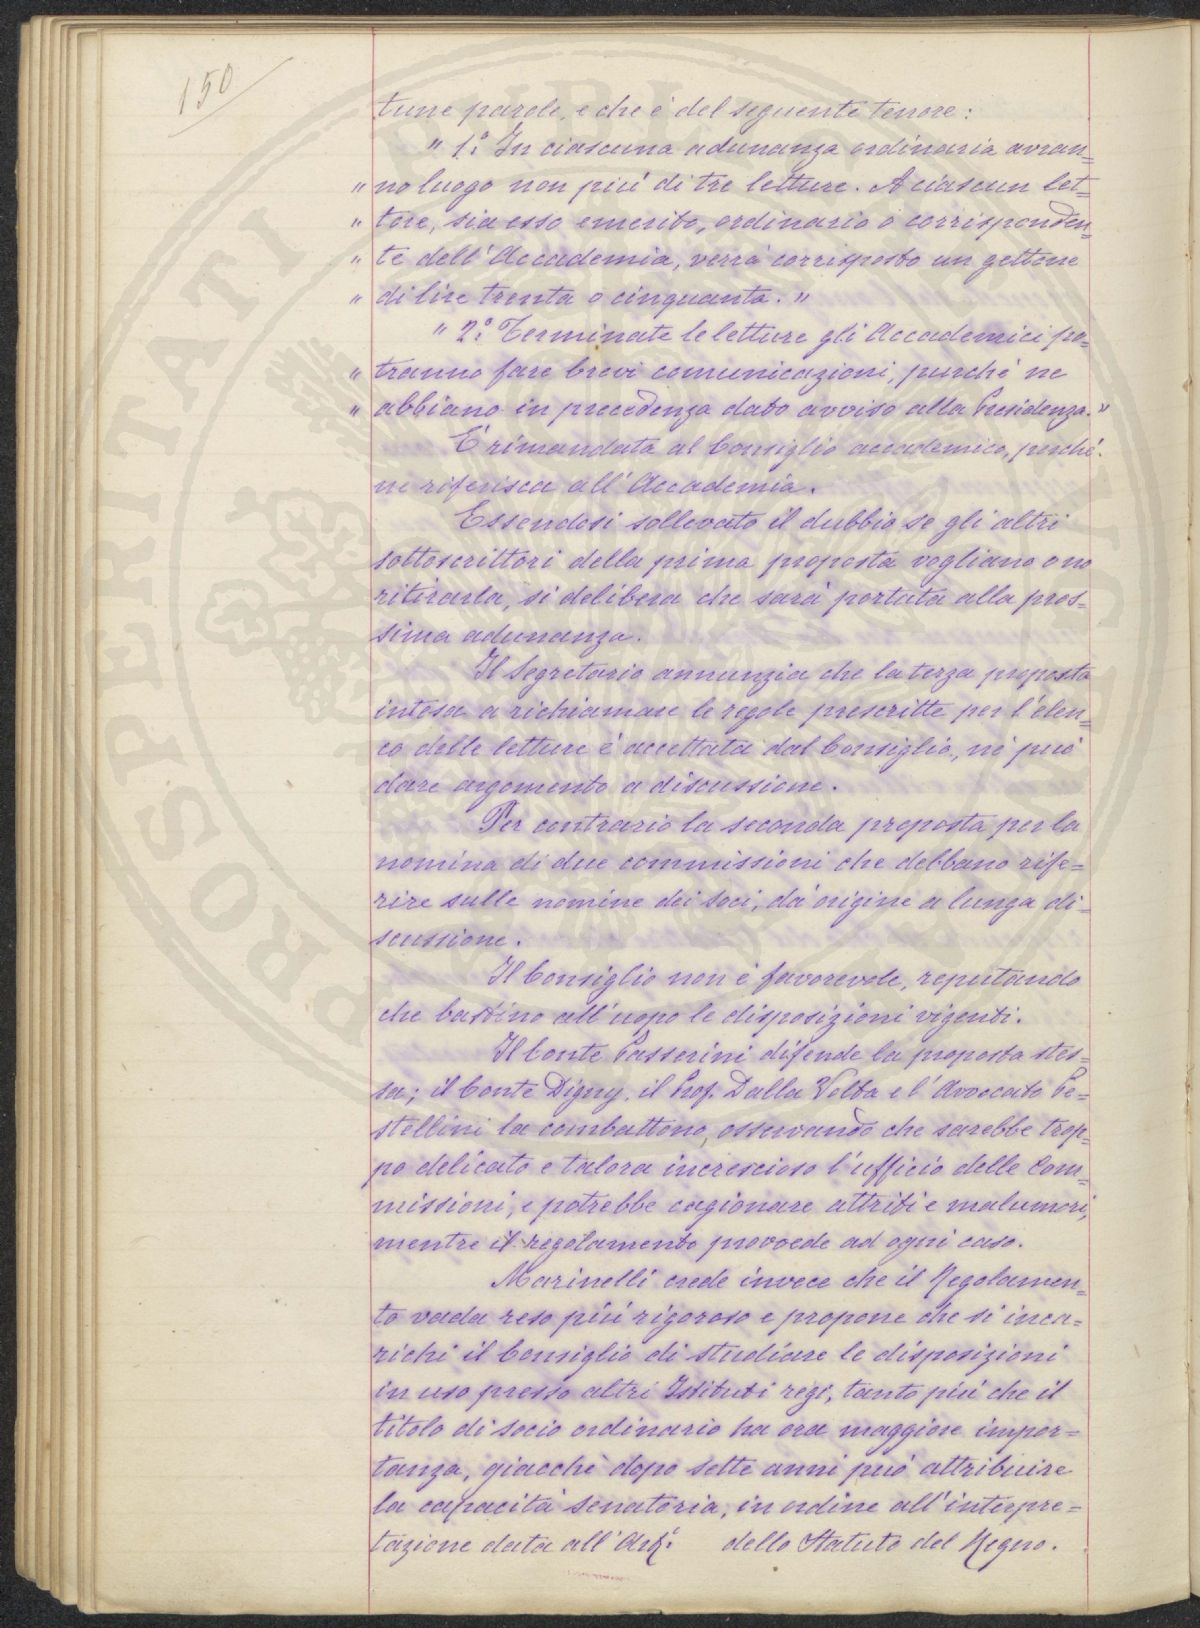 150
tune parole, e che è del seguente tenore:
" 1.º In ciascuna adunanza ordinaria avran=
" no luogo non più di tre letture. A ciascun let=
" tore, sia esso emerito, ordinario o corrisponden=
" te dell'Accademia, verrà corrisposto un gettone
" di lire trenta o cinquanta. "
" 2.º Terminate le letture gli Accademici po=
" tranno fare brevi comunicazioni, purchè ne
" abbiano in precedenza dato avviso alla Presidenza. "
È rimandata al Consiglio accademico, perchè
ne riferisca all'Accademia.
Essendosi sollevato il dubbio se gli altri
sottoscrittori della prima proposta vogliano o no
ritirarla, si delibera che sarà portata alla pros=
sima adunanza.
Il Segretario annunzia che la terza proposta
intesa a richiamare le regole prescritte per l'elen=
co delle letture è accettata dal Consiglio, nè può
dare argomento a discussione.
Per contrario la seconda proposta per la
nomina di due commissioni che debbano rife=
rire sulle nomine dei Soci, dà origine a lunga di=
scussione.
Il Consiglio non è favorevole, reputando
che bastino all'uopo le disposizioni vigenti.
Il Conte Passerini difende la proposta stes=
sa; il Conte Digny, il Prof. Dalla Volta e l'Avvocato Pe=
stellini la combattono, osservando che sarebbe trop=
po delicato e talora increscioso l'ufficio delle Com=
missioni, e potrebbe cagionare attriti e malumori,
mentre il regolamento provvede ad ogni caso.
Marinelli crede invece che il Regolamen=
to vada reso più rigoroso e propone che si inca=
richi il Consiglio di studiare le disposizioni
in uso presso altri Istituti regi, tanto più che il
titolo di socio ordinario ha ora maggiore impor=
tanza, giacchè dopo sette anni può attribuire
la capacità senatoria, in ordine all'interpre=
tazione data all'Art.º dello Statuto del Regno.
PROSPERITATI PUBLICAE